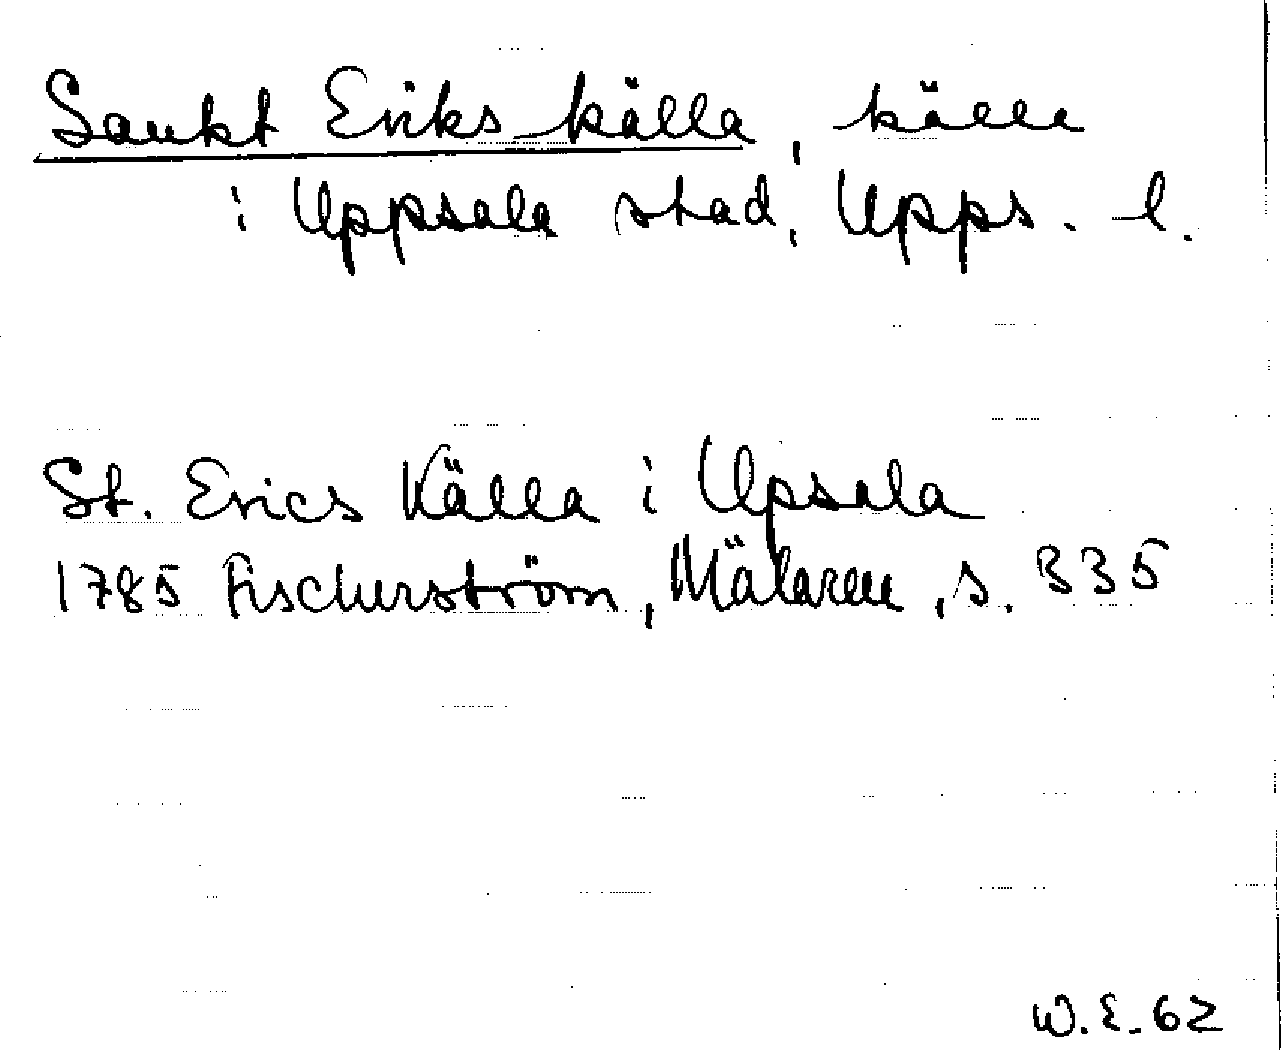 Sankt Eriks källa, källa
i Uppsala stad, Upps. l.
St. Erics Källa i Upsala
1785 Fischerström, Mälaren, s. 335
W.E. 62